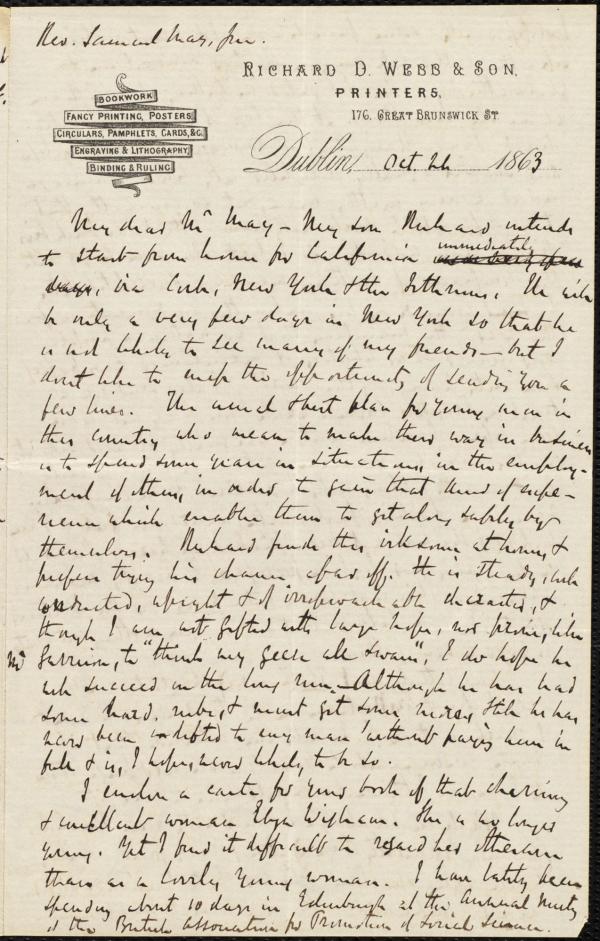 Rev. Samuel May, Jun.
RICHARD D. WEBB & SON,
PRINTERS,
176, GREAT BRUNSWICK ST
BOOKWORK
FANCY PRINTING, POSTERS
CIRCULARS, PAMPHLETS, CARDS, &C.
ENGRAVING & LITHOGRAPHY
BINDING & RULING
Dublin, Oct. 26 1863
My dear Mr May – My son Richard intends
to start from home for California immediately
via Cork, New York & the Isthmus. He will
be only a very few days in New York so that he
is not likely to see many of my friends – but I
don't like to miss the opportunity of sending you a
few lines. The usual & best plan for young men in
this country who mean to make their way in business
is to spend some years in situations, in the employ-
ment of others, in order to gain that kind of expe-
rience which enables them to get along safely by
themselves. Richard finds this irksome at home, &
prefers trying his chance afar off. He is steady, well
conducted, upright & of irreproachable character, &
though I am not gifted with large hope, nor prone, like
Mr Garrison, to "think my geese all swans", I do hope he
will succeed in the long run. Although he has had
some hard rubs, & must get some more, still he has
never been indebted to any man without paying him in
full & is, I hope, never likely to be so.
I enclose a carte for your book of that charming
& excellent woman Eliza Wigham. She is no longer
young. Yet I find it difficult to regard her otherwise
than as a lovely young woman. I have lately been
spending about 10 days in Edinburgh at the Annual Meeting
of the British Association for Promotion of Social Science.